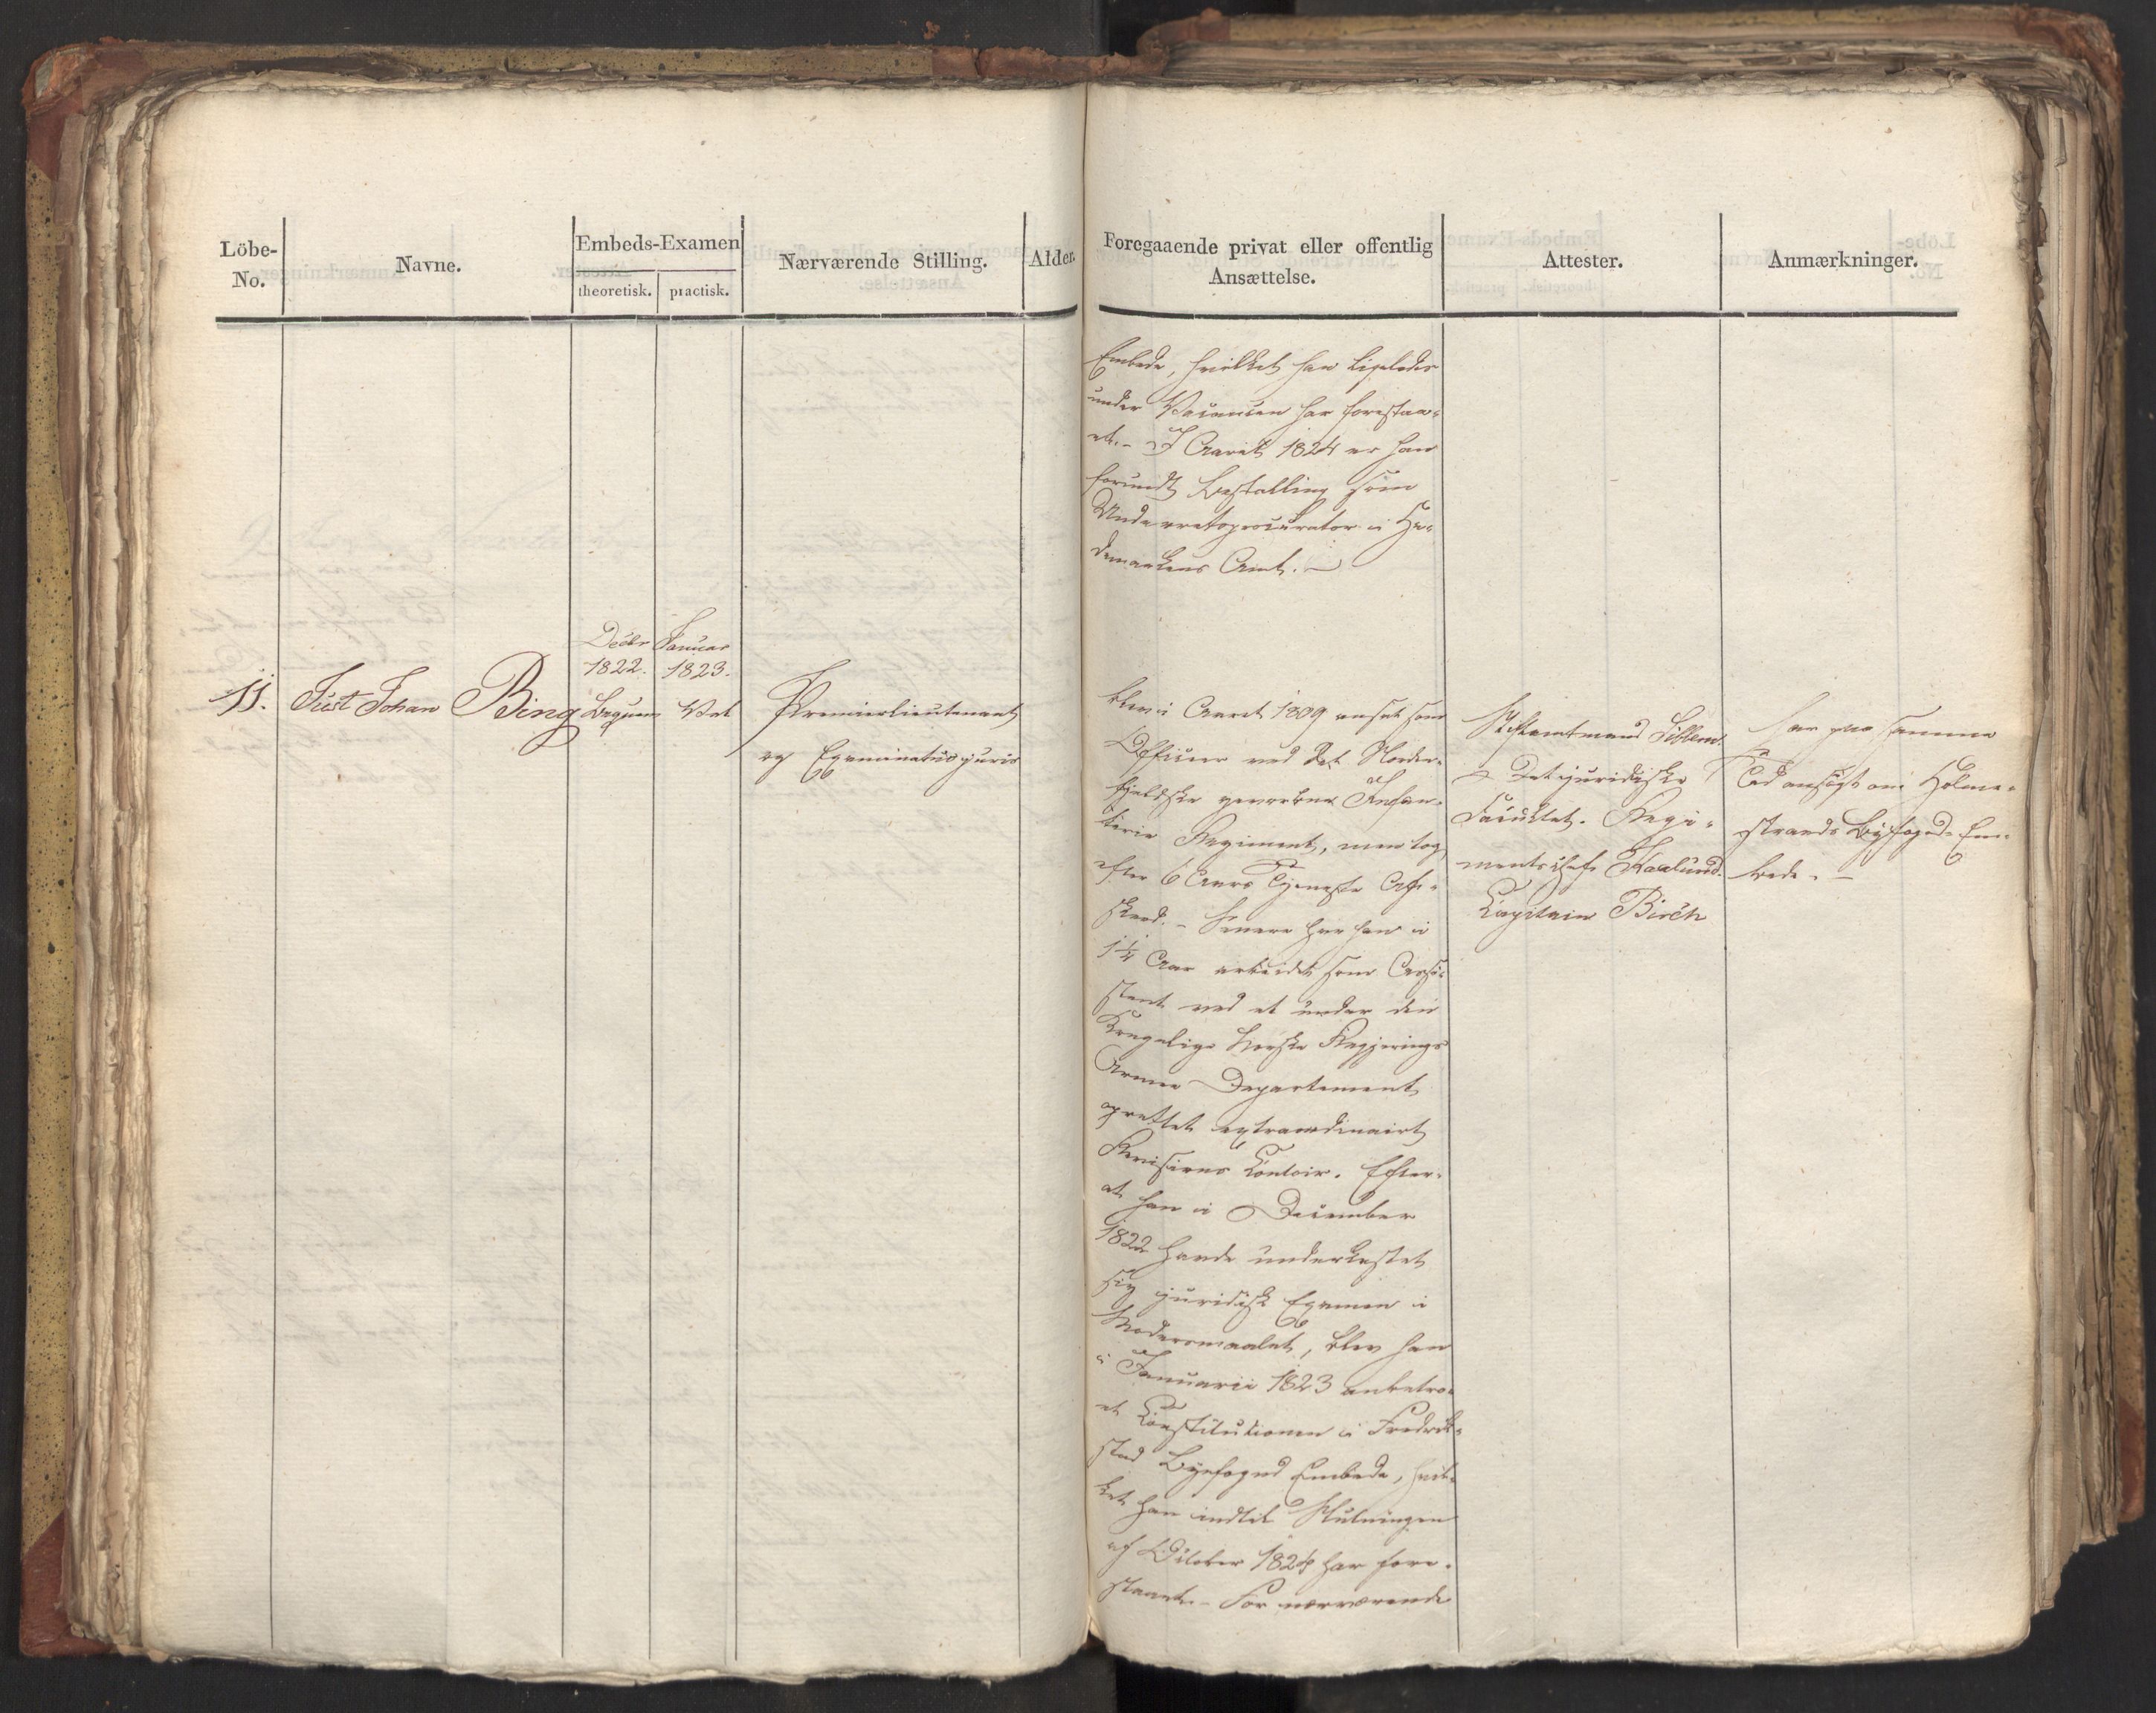 Löbe-
No.
Navne.
Embeds-Examen
theoretisk. practisk.
Nærværende Stilling.
Alder.
Foregaaende privat eller offentlig
Ansættelse.
Attester.
Anmærkninger.
Embede, hvilket han ligeledes
under Vacancen har forestaa-
et. - I Aaret 1824 er han
forundt Bestalling som
Underretsprocurator i He-
demarkens Amt. -
11. Just Johan Bing
Decbr 1822. Beqvem
Januar 1823. Vel
Premierlieutenant
og Examinatus juris
blev i Aaret 1809 ansat som
Officier ved det Norden-
fjeldske gevorbne Infan-
terie Regiment, men tog
efter 6 Aars Tjeneste Af-
skeed. - Senere har han i
1¼ Aar arbeidet som Assi-
stent ved et under den
Kongelige Norske Regjerings
Armee Departement
oprettet extraordinairt
Revisions Contoir. Efter-
at han i December
1822 havde underkastet
sig juridisk Examen i
Modersmaalet, blev han
i Januarii 1823 anbetro-
et Constitutionen i Fredrik-
stad Byefoged Embede, hvil-
ket han indtil Slutningen
af October 1824 har fore-
staaet. - For nærværende
Stiftamtmand Sibbern.
Det juridiske
Facultet. Regi-
mentschef Kaalund.
Capitain Birch
har paa samme
Tid ansøgt om Holme-
strands Byfoged-Em-
bede. -